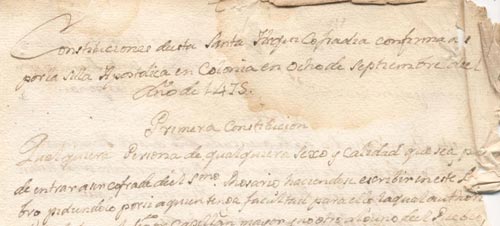 Constituciones desta Santa Virgen Cofradia confirmadas
por la silla Apostolica en Colonia en Ocho de Septiembre del
Año de 1475.
Primera Constitucion
Qualquiera Persona de qualquiera sexo y calidad que sea p
de entrar a ser cofrade del Smo. Rosario haciendose escribir en este Li
bro pidiendolo por si a quien tenga facultad para ello la qual
Capellan mayor